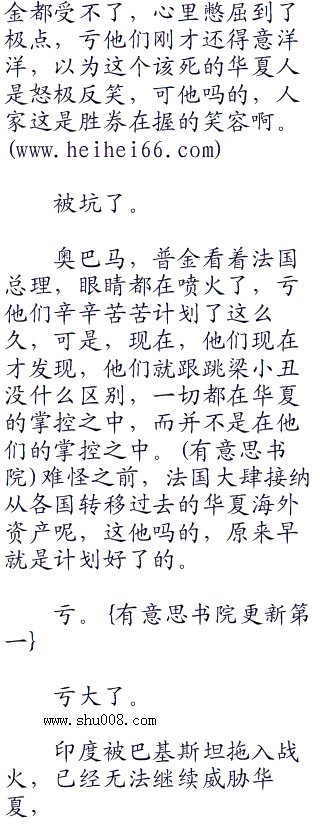 金都受不了，心里憋屈到了
极点，亏他们刚才还得意洋
洋，以为这个该死的华夏人
是怒极反笑，可他吗的，人
家这是胜券在握的笑容啊。
(www.heihei66.com)
被坑了。
奥巴马，普金看着法国
总理，眼睛都在喷火了，亏
他们辛辛苦苦计划了这么
久，可是，现在，他们现在
才发现，他们就跟跳梁小丑
没什么区别，一切都在华夏
的掌控之中，而并不是在他
们的掌控之中。(有意思书
院)难怪之前，法国大肆接纳
从各国转移过去的华夏海外
资产呢，这他吗的，原来早
就是计划好了的。
亏。{有意思书院更新第
一}
亏大了。
www.shu008.com
印度被巴基斯坦拖入战
火，已经无法继续威胁华
夏，